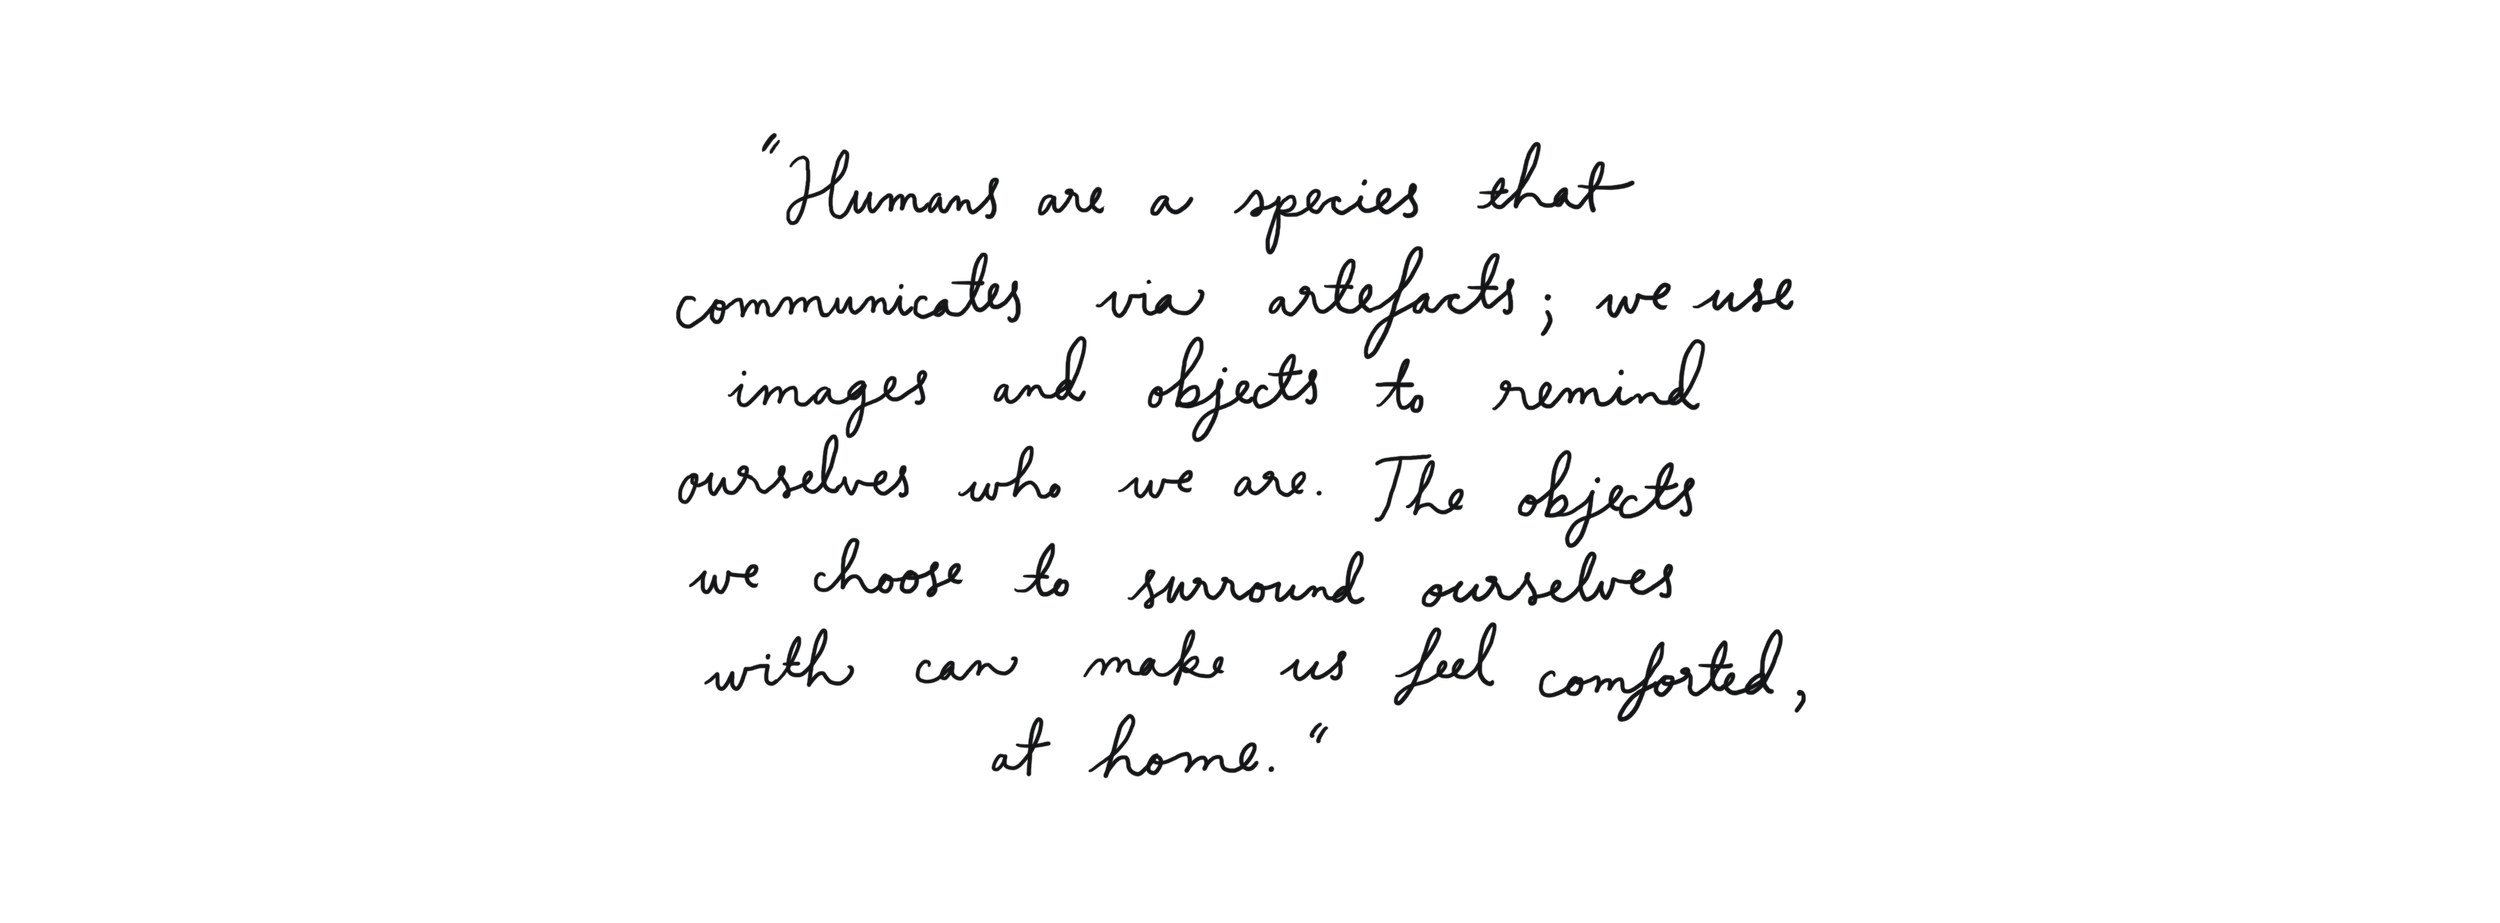 "Humans are a species that
communicates via artefacts; we use
images and objects to remind
ourselves who we are. The objects
we choose to surround ourselves
with can make us feel comforted,
at home."